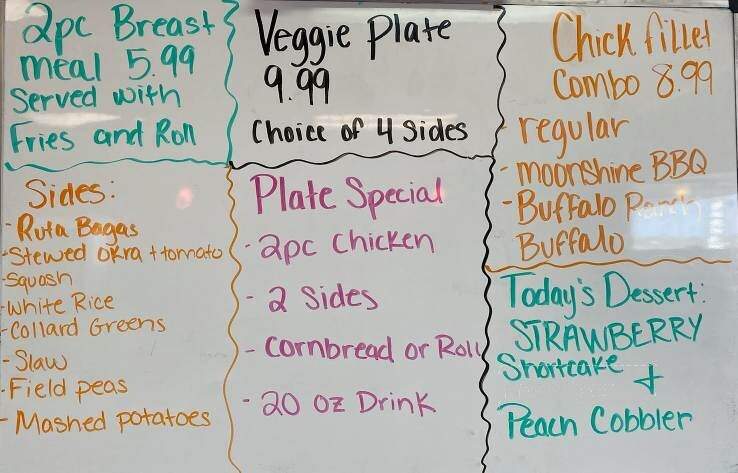 2pc Breast
meal 5.99
Served with
Fries and Roll
Veggie Plate
9.99
Choice of 4 Sides
Chick fillet
Combo 8.99
- regular
- moonshine BBQ
- Buffalo Ranch
Buffalo
Sides:
- Ruta Bagas
- Stewed okra + tomato
- Squash
- White Rice
- Collard Greens
- Slaw
- Field peas
- Mashed potatoes
Plate Special
- 2pc Chicken
- 2 Sides
- Cornbread or Roll
- 20 oz Drink
Today's Dessert:
STRAWBERRY
Shortcake +
Peach Cobbler